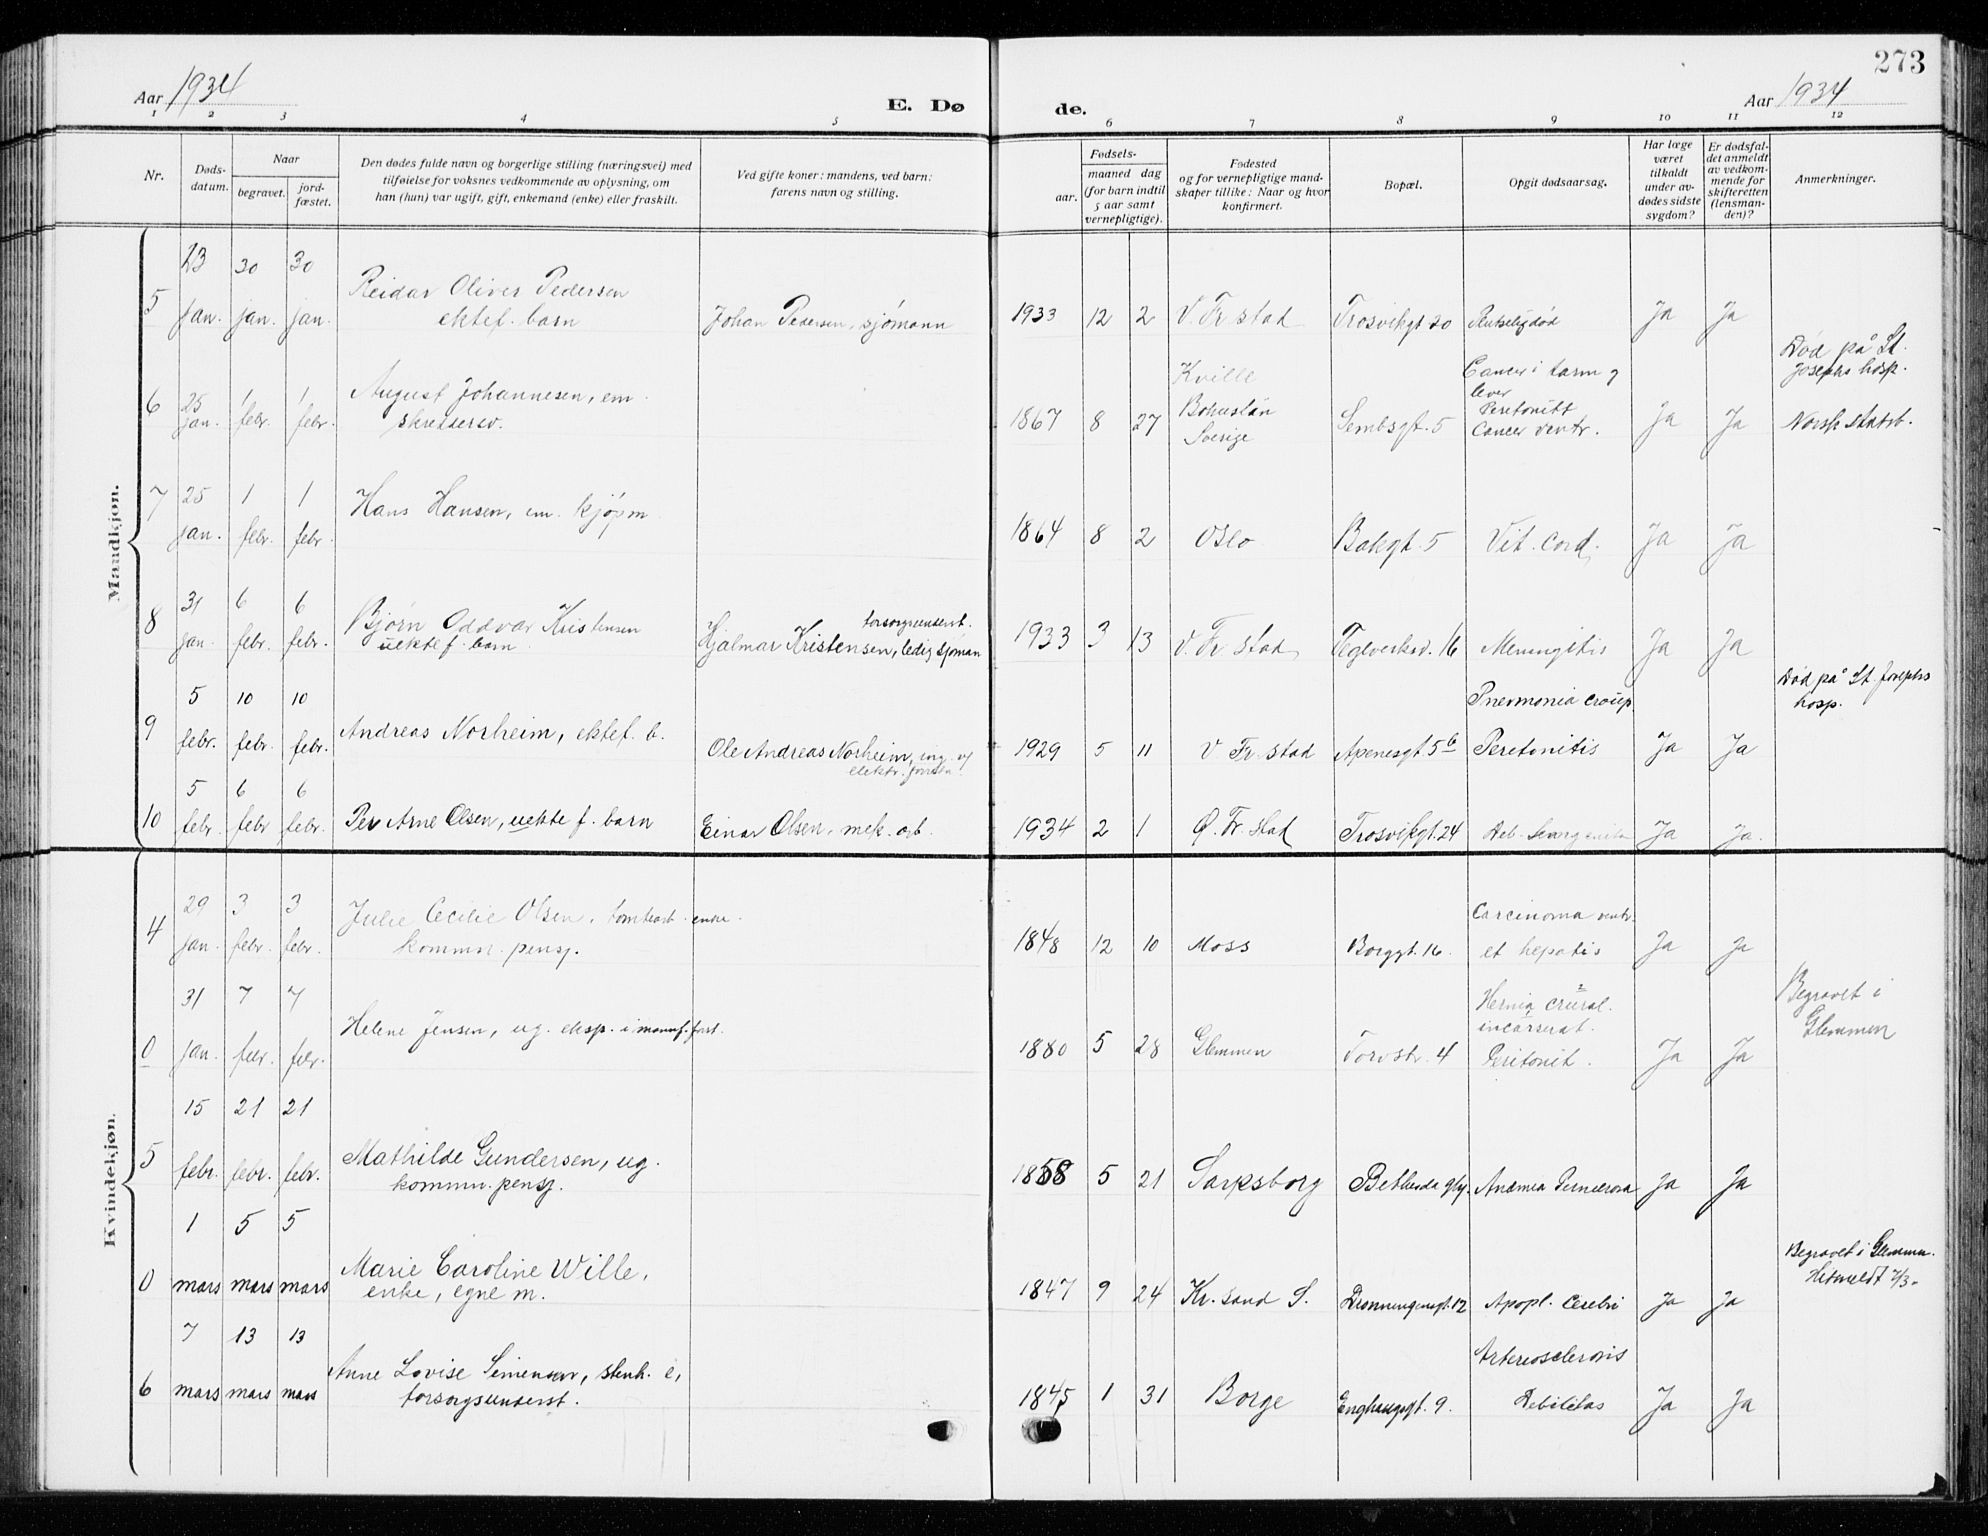 273
Aar 1934
E. Dø
de.
Aar 1934
1 2 3 4 5 6 7 8 9 10 11 12
Nr.
Døds-
datum.
Naar
begravet.
jord-
fæstet.
Den dødes fulde navn og borgerlige stilling (næringsvei) med
tilføielse for voksnes vedkommende av oplysning, om
han (hun) var ugift, gift, enkemand (enke) eller fraskilt.
Ved gifte koner: mandens, ved barn:
farens navn og stilling.
Fødsels-
aar.
maaned dag
(for barn indtil
5 aar samt
vernepligtige).
Fødested
og for vernepligtige mand-
skaper tillike: Naar og hvor
konfirmert.
Bopæl.
Opgit dødsaarsag.
Har læge
været
tilkaldt
under av-
dødes sidste
sygdom?
Er dødsfal-
det anmeldt
av vedkom-
mende for
skifteretten
(lensman-
den)?
Anmerkninger.
Mandkjøn.
13 30 30
5 jan. jan. jan.
Reidar Oliver Pedersen
ektef. barn
Johan Pedersen, sjømann
1933 12 2 V. Fr. stad Trosvikgt 20 Ja Ja
Død på St.
Josephs hosp.
6 25 1 1
jan. febr. febr.
August Johannesen, em.
skreddersv.
Kville
1867 8 27 Bohuslän
Sverige
Sembsgt. 5
Cancer i tarm og
lever
Peretonitt
Cancer ventr.
Ja Ja Norsk statsb.
7 25 1 1
jan. febr. febr.
Hans Hansen, em. kjøpm
1864 8 2 Oslo Bakgt. 5 Vit. Cord. Ja Ja
8 31 6 6
jan. febr. febr.
Bjørn Oddvar Kristensen
uektef. barn
forsorgsunderst.
Hjalmar Kristensen, ledig sjøman
1933 3 13 V. Fr. stad Teglverksv. 16 Meningitis Ja Ja
9 5 10 10
febr. febr. febr.
Andreas Norheim, ektef. b.
Ole Andreas Norheim, ing. v/
elektr.
1929 5 11 V Fr. stad Apenesgt. 5 b
Pnevmonia croup.
Peretonitis
Ja Ja
Død på St. Josephs
hosp.
10 5 6 6
febr. febr febr.
Per Arne Olsen, uekte f. barn
Einar Olsen, mek. arb.
1934 2 1 Ø. Fr. stad Trosvikgt. 24 Deb. Ja Ja.
Kvindekjøn.
4 29 3 3
jan. febr. febr.
Julie Cecilie Olsen, tomtearb. enke.
kommun. pensj.
1848 12 10 Moss Borggt. 16.
Carcinoma ventr.
et hepatis
Ja Ja
0 31 7 7
jan. febr. febr.
Helene Jensen, ug. eksp. i manuf. forr.
1880 5 28 Glemmen Torvstr. 4
Hernia crural.
incarserat.
Peritonit.
Ja Ja
Begravet i
Glemmen
5 15 21 21
febr. febr. febr.
Mathilde Gundersen, ug.
kommun. pensj.
1858 5 21 Sarpsborg Bethesda Anæmia Pernicrosa Ja Ja
0 1 5 5
mars mars mars
Marie Caroline Wille,
enke, egne m.
1847 9 24 Kr. sand S. Dronningensgt. 12 Apopl. Cerebri Ja Ja
Begravet i Glemmn.
Hitmeldt 7/3-
6 7 13 13
mars mars mars
Anne Lovise Simensen, stenh. e,
forsorgsunderst.
1845 1 31 Borge Enghaugsgt. 9.
Arteriosclerosis
Debilitas
Ja Ja